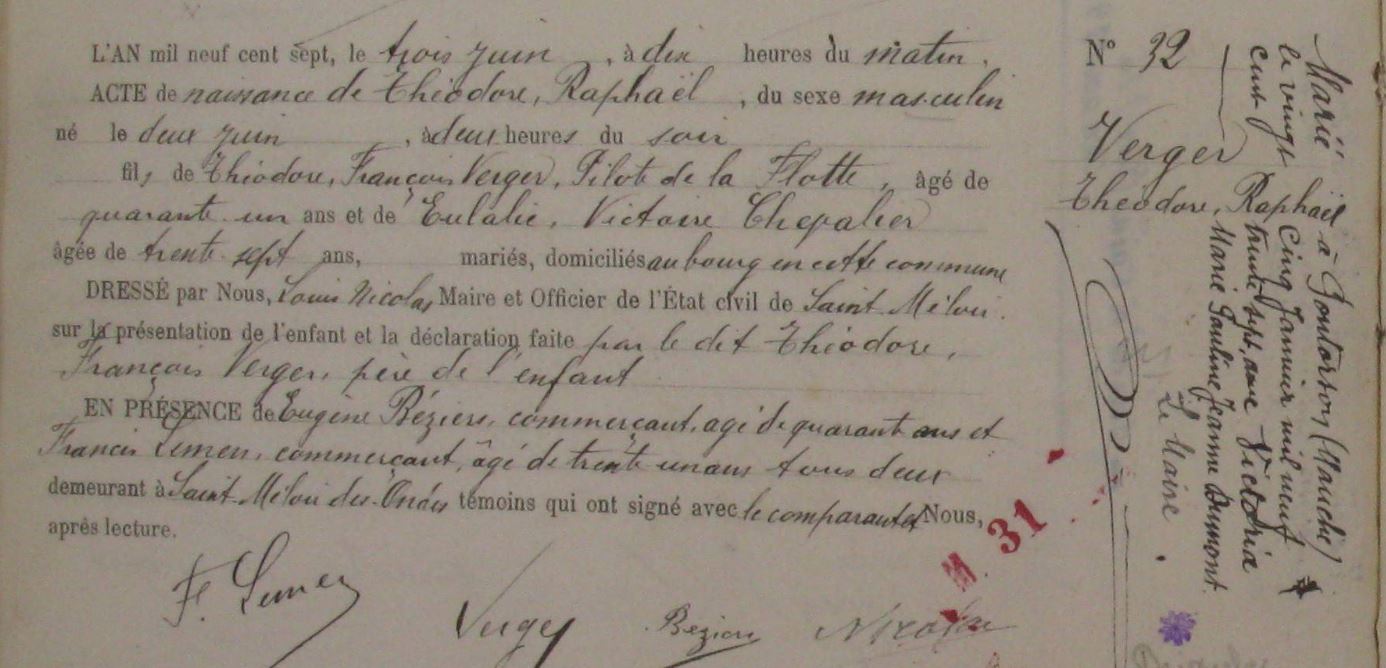 L'AN mil neuf cent sept, le trois juin, à dix heures du matin,
ACTE de naissance de Théodore, Raphaël, du sexe masculin
né le deux juin, à deux heures du soir
fils de Théodore, François Verger, Pilote de la Flotte, âgé de
quarante un ans et de Eulalie, Victoire Chevalier
âgée de trente sept ans, mariés, domiciliés au bourg en cette commune
DRESSÉ par Nous, Louis Nicolas Maire et Officier de l'État civil de Saint Méloir
sur la présentation de l'enfant et la déclaration faite par le dit Théodore,
François Verger, père de l'enfant
EN PRÉSENCE de Eugène Béziers, commerçant, agé de quarante ans et
Francis Lemen, commerçant, âgé de trente un ans tous deux
demeurant à Saint Méloir des Ondes témoins qui ont signé avec le comparant et Nous,
après lecture.
F. Lemen
Verger
Béziers
Nicolas
M 31
N° 32
Verger
Théodore, Raphaël
Marié à Pontorson (Manche)
le vingt cinq Janvier mil neuf
cent trente sept, avec Victoria
Marie Pauline Jeanne Dumont.
Le Maire